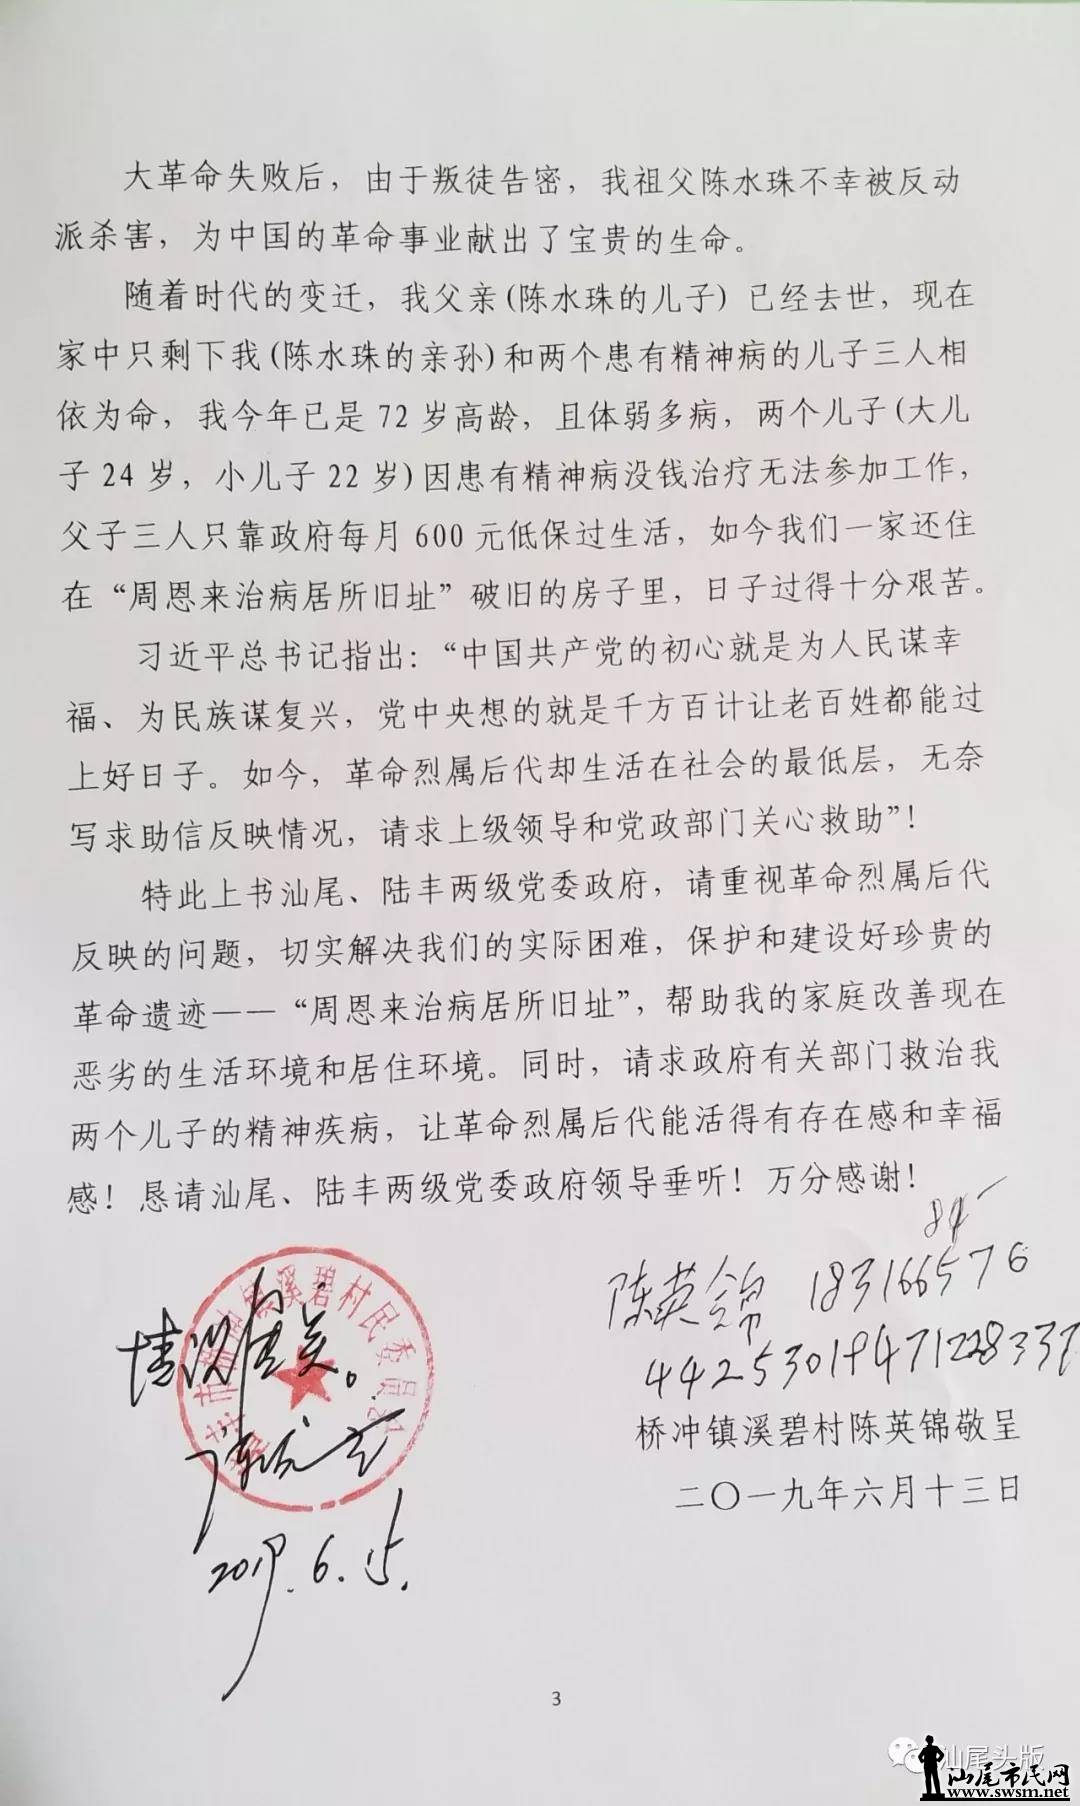 大革命失败后，由于叛徒告密，我祖父陈水珠不幸被反动
派杀害，为中国的革命事业献出了宝贵的生命。
随着时代的变迁，我父亲(陈水珠的儿子) 已经去世，现在
家中只剩下我(陈水珠的亲孙)和两个患有精神病的儿子三人相
依为命，我今年已是 72 岁高龄，且体弱多病，两个儿子(大儿
子 24 岁，小儿子 22 岁)因患有精神病没钱治疗无法参加工作，
父子三人只靠政府每月 600 元低保过生活，如今我们一家还住
在“周恩来治病居所旧址”破旧的房子里，日子过得十分艰苦。
习近平总书记指出：“中国共产党的初心就是为人民谋幸
福、为民族谋复兴，党中央想的就是千方百计让老百姓都能过
上好日子。如今，革命烈属后代却生活在社会的最低层，无奈
写求助信反映情况，请求上级领导和党政部门关心救助”！
特此上书汕尾、陆丰两级党委政府，请重视革命烈属后代
反映的问题，切实解决我们的实际困难，保护和建设好珍贵的
革命遗迹——“周恩来治病居所旧址”，帮助我的家庭改善现在
恶劣的生活环境和居住环境。同时，请求政府有关部门救治我
两个儿子的精神疾病，让革命烈属后代能活得有存在感和幸福
感！恳请汕尾、陆丰两级党委政府领导垂听！万分感谢！
陈英锦 1831665766
桥冲镇溪碧村陈英锦敬呈
二〇一九年六月十三日
镇溪碧村民委员会
情况属实。
2019.6.15.
3
汕尾头版
汕尾市民网
www.swsm.net